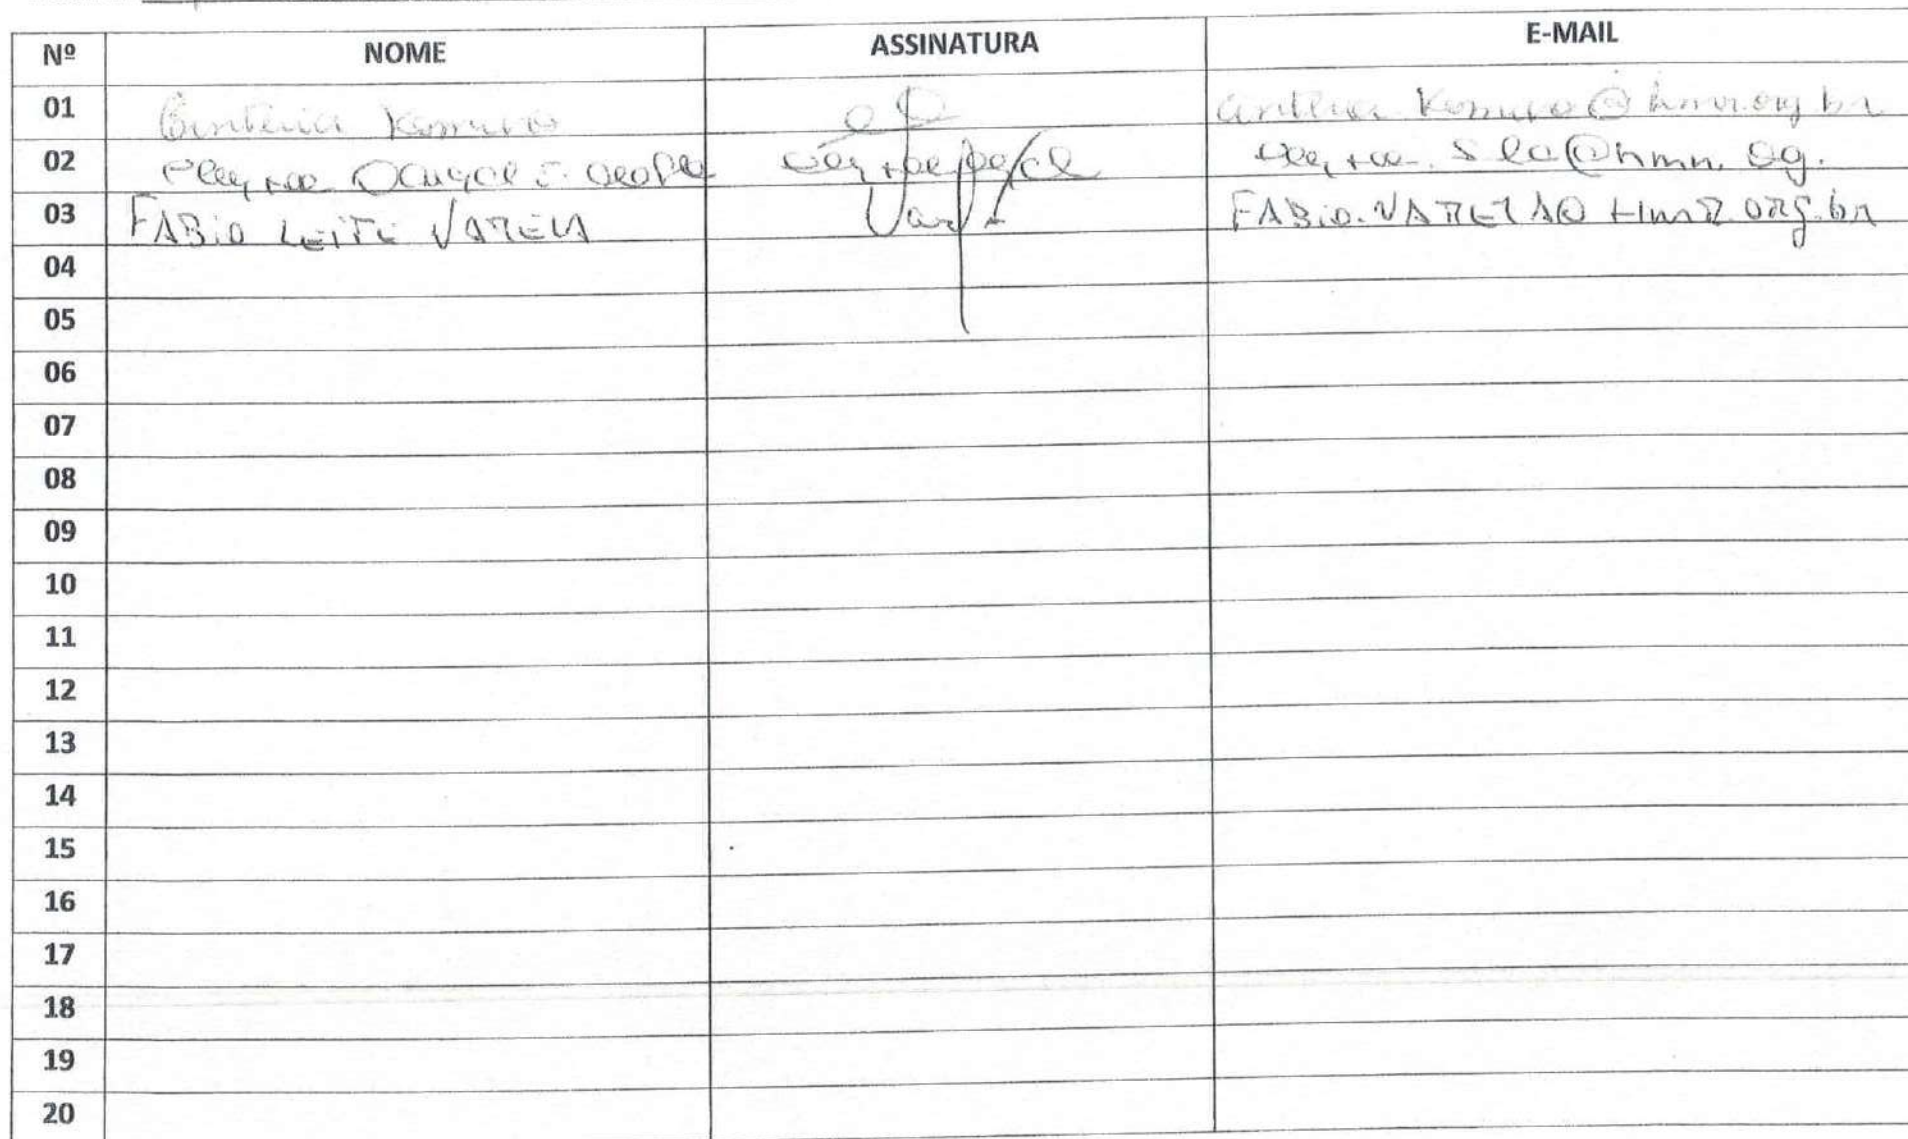 Nº NOME ASSINATURA E-MAIL
01 Cinthia Komuro cinthia.komuro@hmr.org.br
02
03 FABIO LEITE VARELA FABIO.VARELA@HMR.org.br
04
05
06
07
08
09
10
11
12
13
14
15
16
17
18
19
20